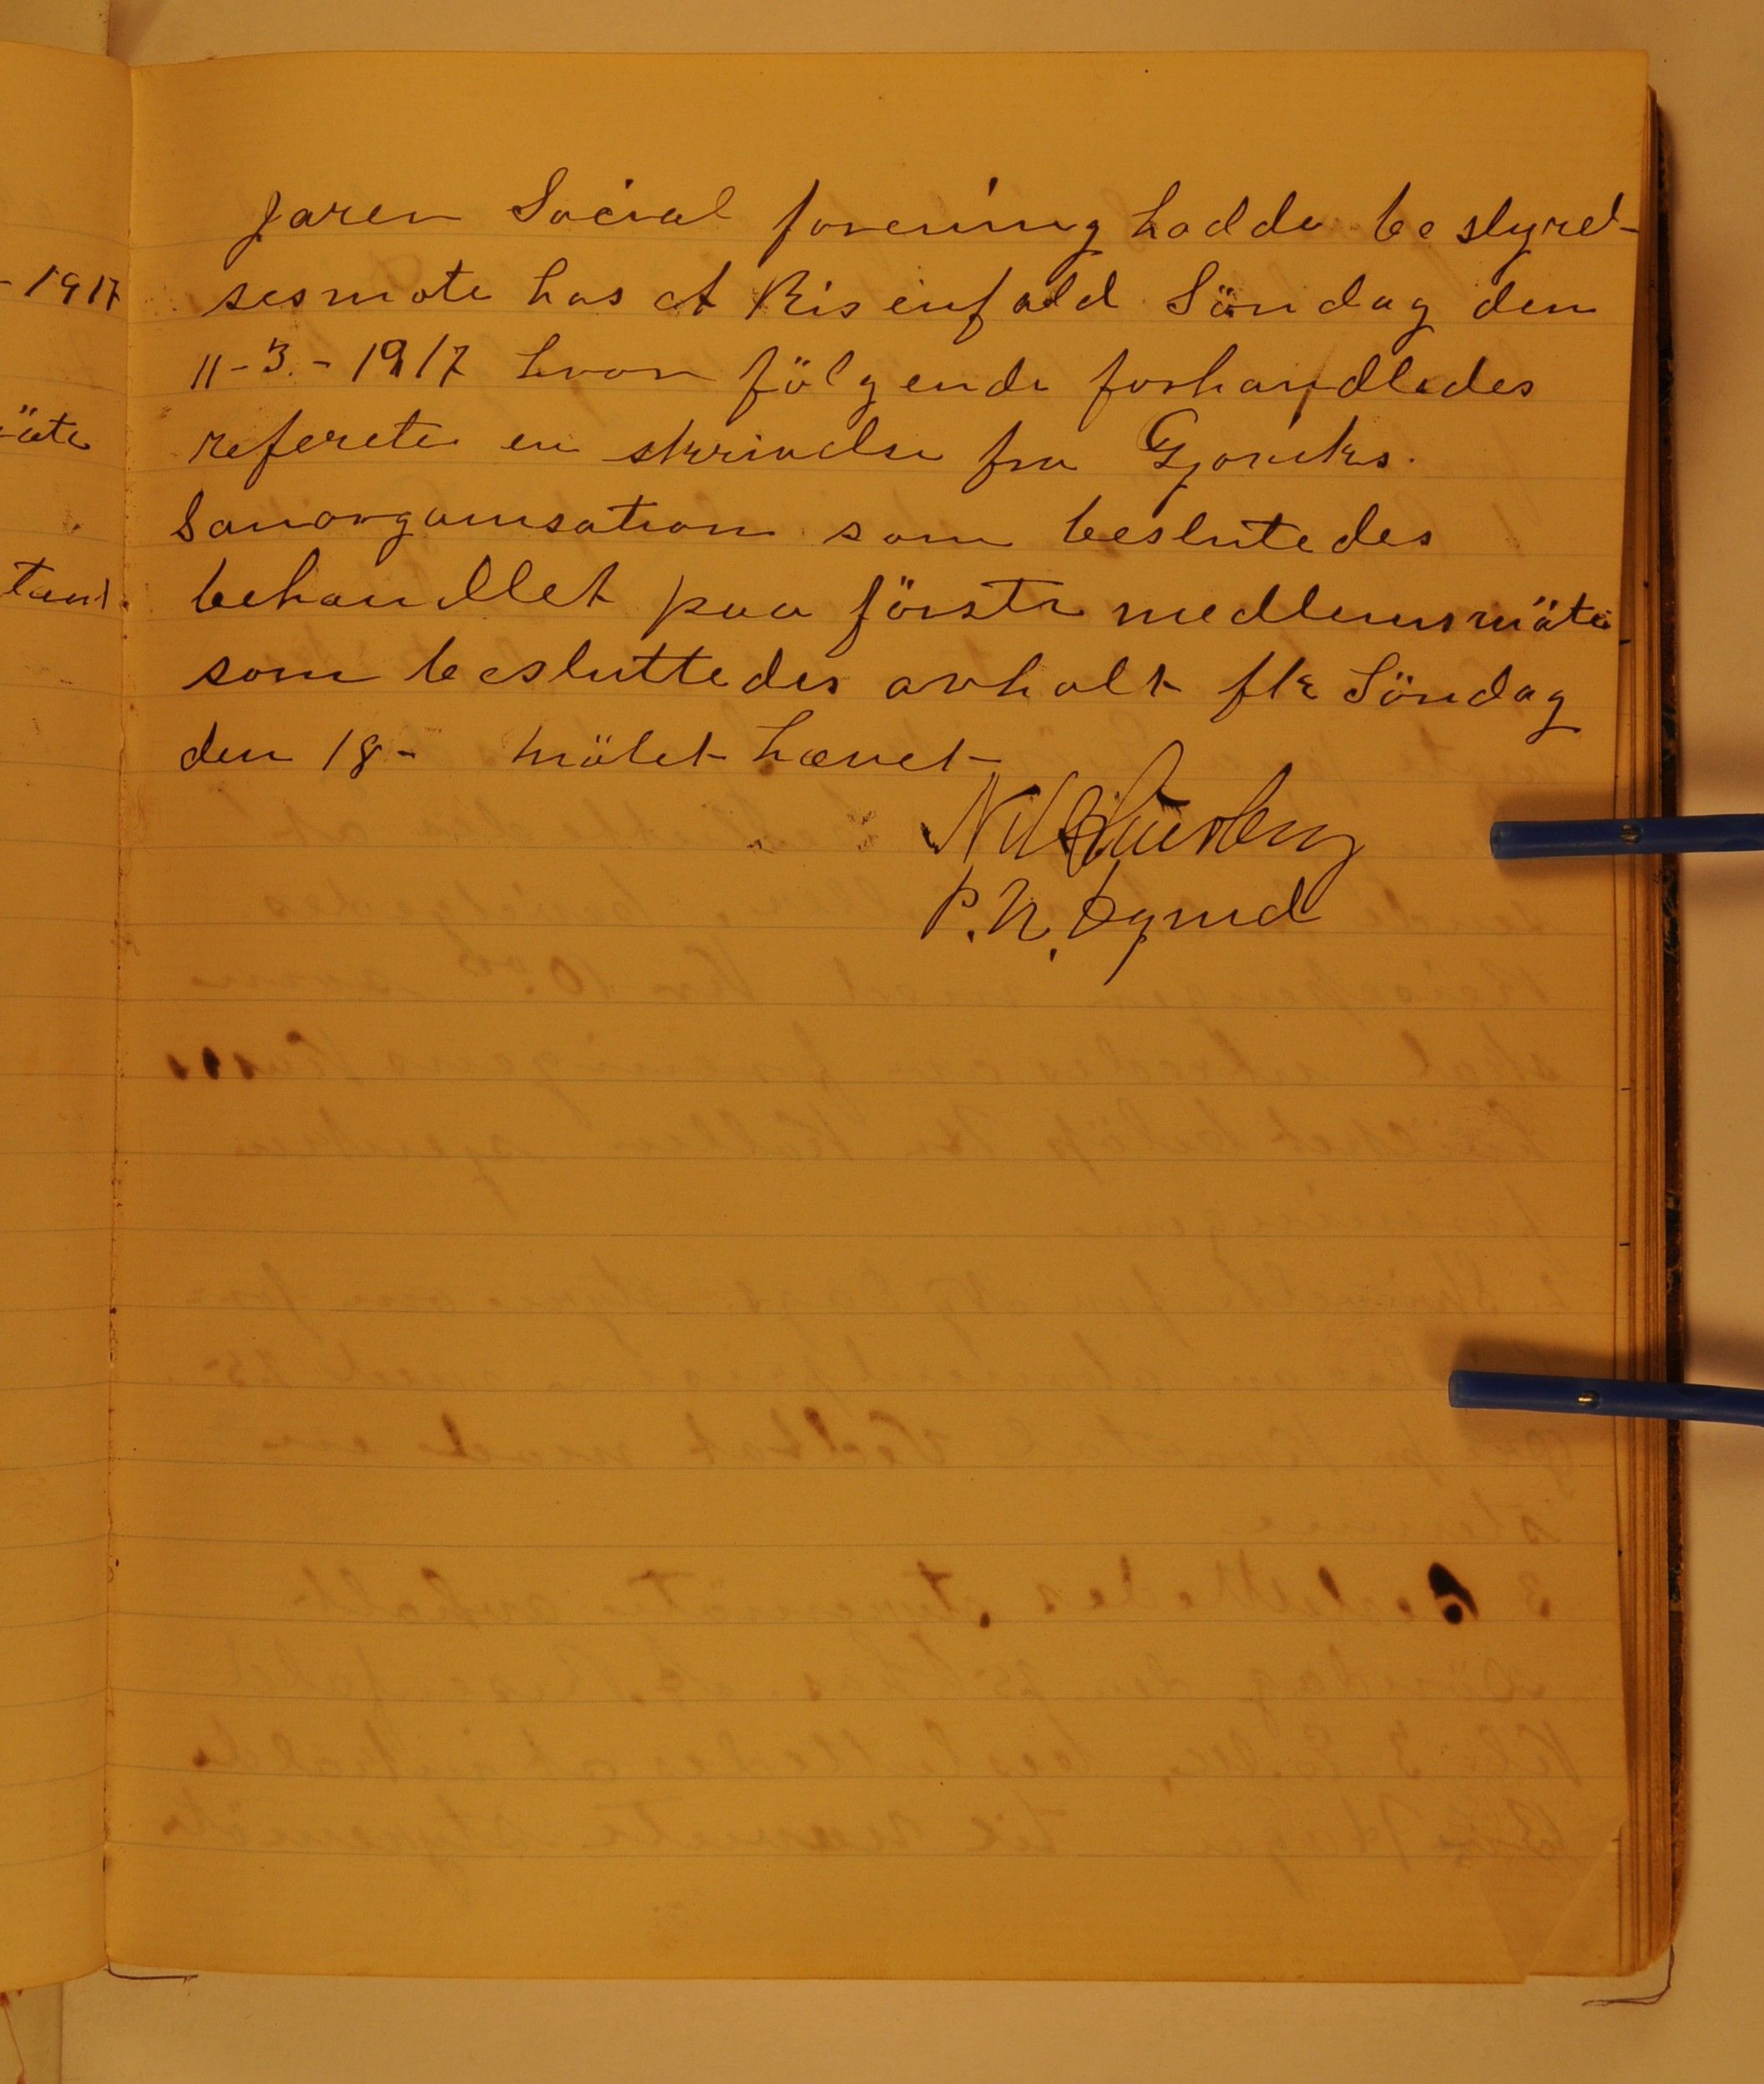 Jaren Social forening hadde bestyrel-
sesmöte hos A Risenfald Söndag den
11-3.-1917 hvor fölgende forhandledes
referete en skrivelse fra Gjøviks.
Samorganisation som beslutedes
behandllet paa förste medlemsmöte
som besluttedes avholt flk Söndag
den 18- mötet hævet
P. N.
- 1917